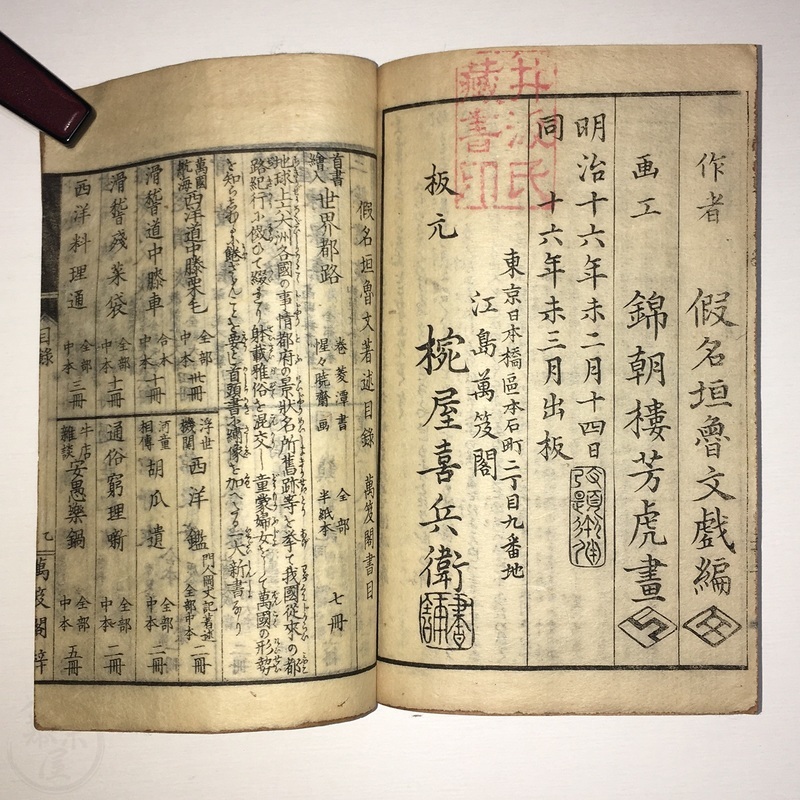 作者 假名垣魯文戲編
画工 錦朝樓芳虎畫
明治十六年未二月十四日 改題御届
同 十六年未三月出板
東京日本橋區本石町二丁目九番地
江島萬笈閣
板元 椀屋喜兵衛
井波氏
藏書印
假名垣魯文著述目錄 萬笈閣書目
首書
繪入 世界都路 巻菱潭書
惺々暁齋画 全部
半紙本 七冊
地球上六大洲各國の事情都府の景状名所舊跡等を挙て我國従来の都
路紀行に倣ひて綴まり
童蒙婦女をして萬國の形勢
萬國
航海 西洋道中膝栗毛 全部
中本 卅冊
滑稽道中膝車 合本
中本 十冊
滑稽殘菜袋 全部
中本 十二冊
西洋料理通 全部
中本 三冊
浮世
機関 西洋鑑 門人岡丈記著述
全部中本 二冊
河童
相傳 胡瓜遣 全部
中本 二冊
通俗窮理噺 全部
中本 二冊
牛店
雜談 安愚樂鍋 全部
中本 五冊
目錄
九
萬笈閣梓